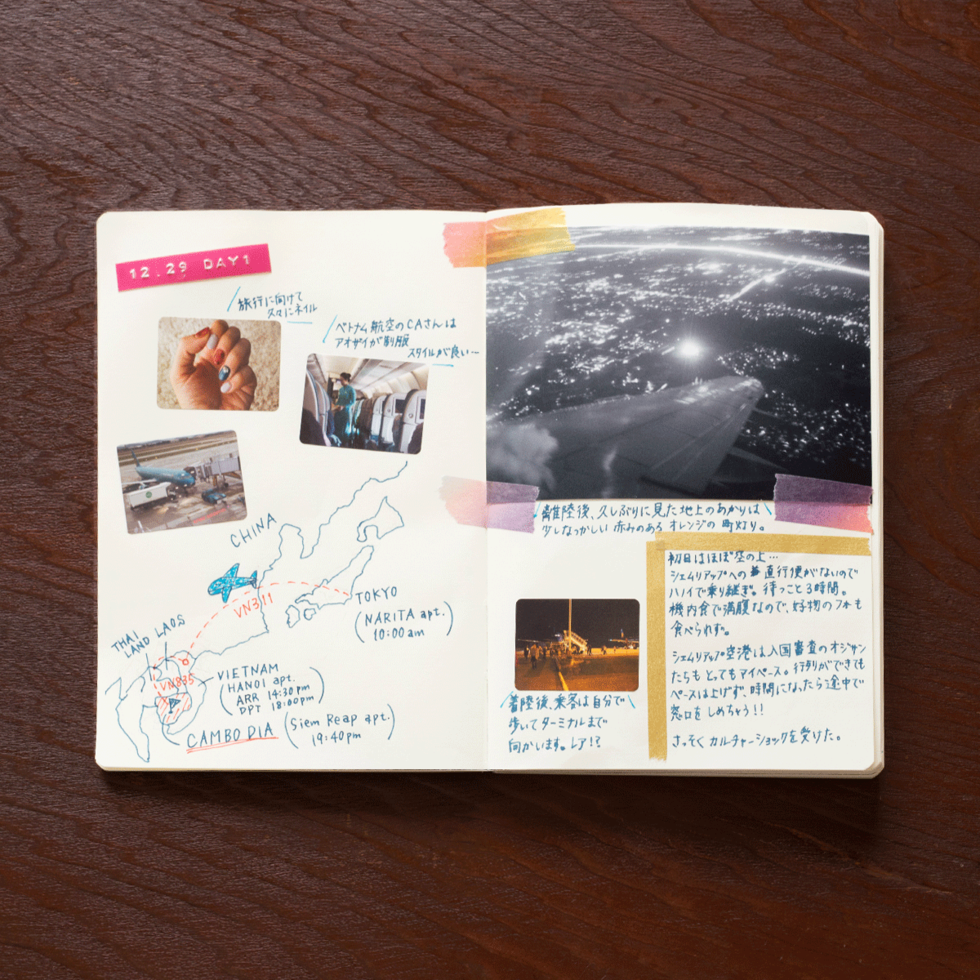 12.29 DAY1
旅行に向けて
ネイル
ベトナム航空のCAさんは
アオザイが制服
スタイルが良い…
CHINA
TOKYO
(NARITA apt.)
10:00am
VN311
THAI
LAND
LAOS
VN835
VIETNAM
(HANOI apt.
ARR 14:30pm
DPT 18:00pm)
CAMBODIA
(Siem Reap apt.)
19:40pm
離陸後、久しぶりに見た地上のあかりは
少しなつかしい赤みのあるオレンジの町灯り。
着陸後、乗客は自分で
歩いてターミナルまで
向かいます。レア!?
初日はほぼ空の上…
シェムリアップへの直行便がないので
ハノイで乗り継ぎ。待つこと3時間。
機内食で満腹なので、好物のフォも
食べられず。
シェムリアップ空港は入国審査のオジサン
たちもとってもマイペース。行列ができても
ペースは上げず、時間になったら途中で
窓口をしめちゃう!!
さっそくカルチャーショックを受けた。